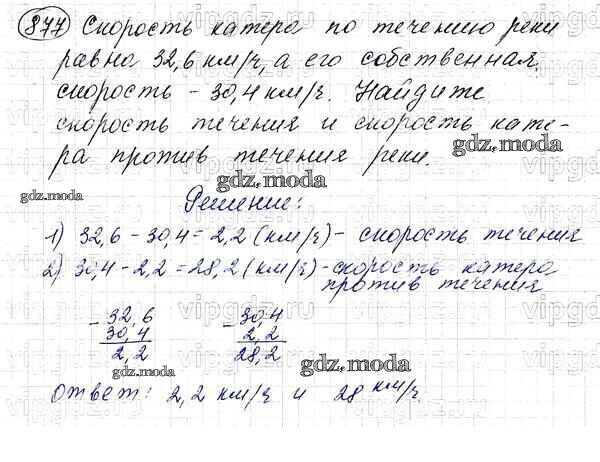 877 Скорость катера по течению реки
равна 32,6 км/ч, а его собственная
скорость - 30,4 км/ч. Найдите
скорость течения и скорость кате-
ра против течения реки.
gdz.moda
gdz.moda
gdz.moda
Решение:
1) 32,6 - 30,4 = 2,2 (км/ч) - скорость течения
2) 30,4 - 2,2 = 28,2 (км/ч) - скорость катера
против течения
- 32,6 - 30,4
30,4 2,2
2,2 28,2
gdz.moda
gdz.moda
ответ: 2,2 км/ч и 28 км/ч.